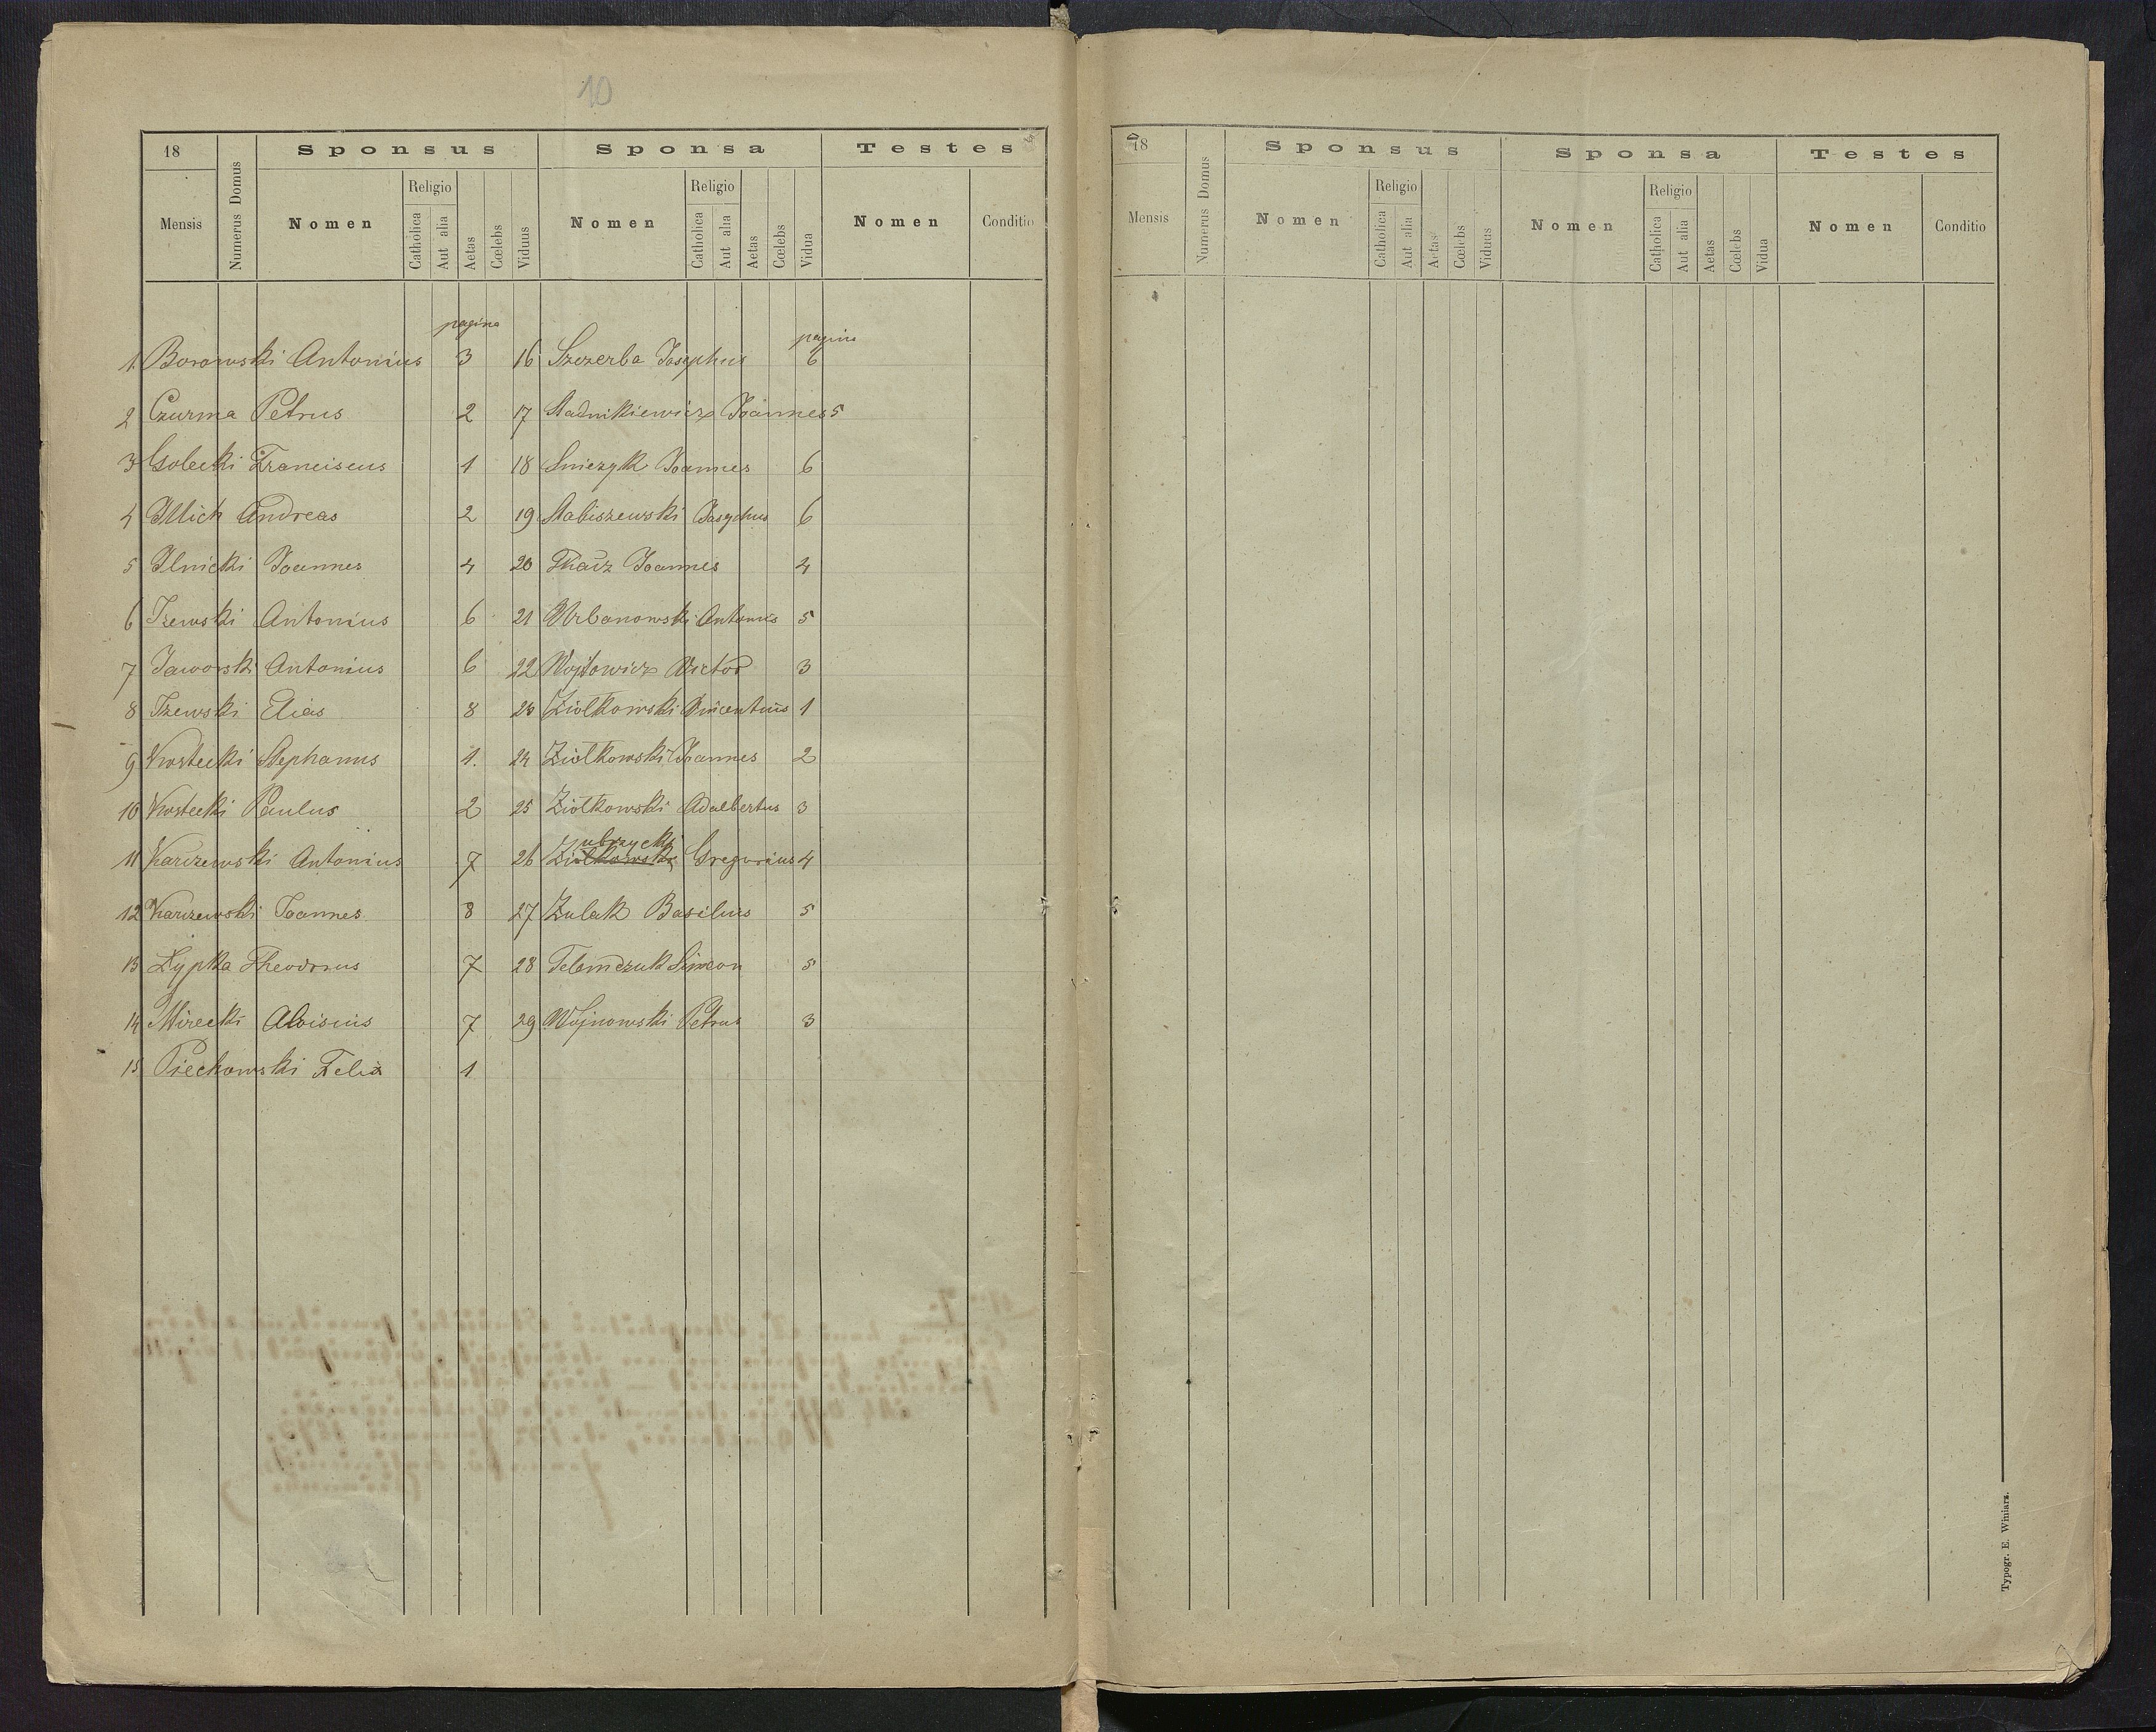 10
18
Sponsus
Sponsa
Testes
Mensis
Numerus Domus
Nomen
Religio
Catholica
Aut alia
Aetas
Cœlebs
Viduus
Nomen
Religio
Catholica
Aut alia
Aetas
Cœlebs
Vidua
Nomen
Conditio
pagina
1. Borowski Antonius 3
2 Czurma Petrus 2
3 Golecki Franciscus 1
4 Illich Andreas 2
5 Ilnicki Joannes 4
6 Izewski Antonius 6
7 Jaworski Antonius 6
8 Izewski Elias 8
9 Kostecki Stephanus 1.
10 Kostecki Paulus 2
11 Karczewski Antonius 7
12 Karczewski Joannes 8
13 Łypka Theodorus 7
14 Mirecki Aloisius 7
15 Piechowski Felix 1
pagina
16 Szczerba Josephus 6
17 Stadnikiewicz Joannes 5
18 Sniezyk Joannes 6
19 Stabiszewski Josephus 6
20 Tkacz Joannes 4
21 Urbanowski Antonius 5
22 Wojtowicz Victor 3
23 Ziolkowski Vincentius 1
24 Ziolkowski Joannes 2
25 Ziolkowski Adalbertus 3
ubrzycki
26 Ziolkowski Gregorius 4
27 Zulak Basilius 5
28 Telemczuk Simeon 5
29 Wojnowski Petrus 3
18
Sponsus
Sponsa
Testes
Mensis
Numerus Domus
Nomen
Religio
Catholica
Aut alia
Aetas
Cœlebs
Viduus
Nomen
Religio
Catholica
Aut alia
Aetas
Cœlebs
Vidua
Nomen
Conditio
Typogr. E. Winiarz.